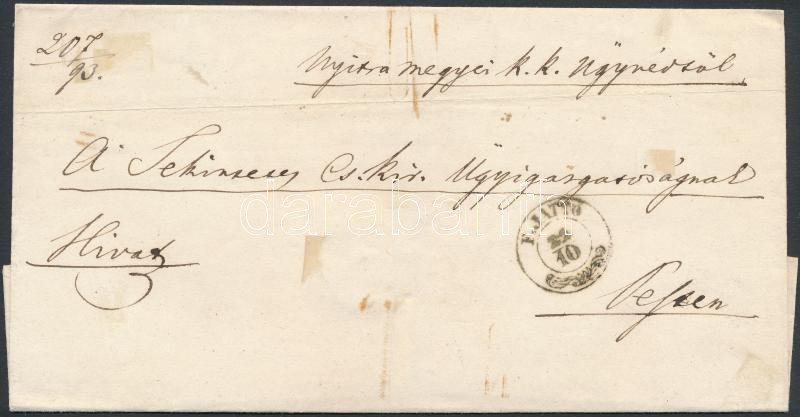 207
93.
Nyitra megyei k. k. Ügyvédtöl
A Tekinteses Cs. kir. Ügyigazgatóságnak
F. JATTO
22
10
Hivat
Pesten
darabanth